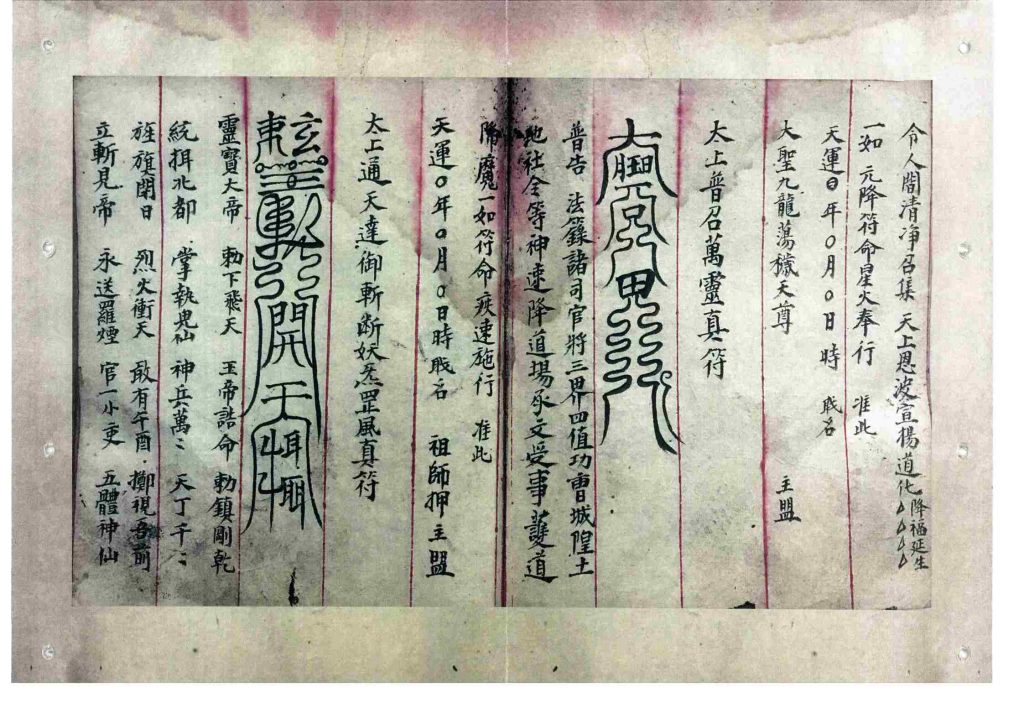 令人間清净召集 天上恩波宣揚道化降福延生
一如 元降符命星火奉行 准此
天運 年〇月〇日 時 職名
大聖九龍蕩穢天尊 主盟
太上普召萬靈真符
普告 法籙諸司官將三界四值功曹城隍土
地社令等神速降道場承文受事護道
降魔一如符命疾速施行 准此
天運〇年〇月〇日時職名 祖師押主盟
太上通天達御斬断妖炁罡風真符
靈寶大帝 勅下飛天 玉帝誥命 勅鎮剛乾
統押北都 掌執鬼仙 神兵萬〻 天丁千〻
旌旗閉日 烈火衝天 敢有午酉 擲視吾前
立斬見帝 永送羅煙 官一小吏 五體神仙